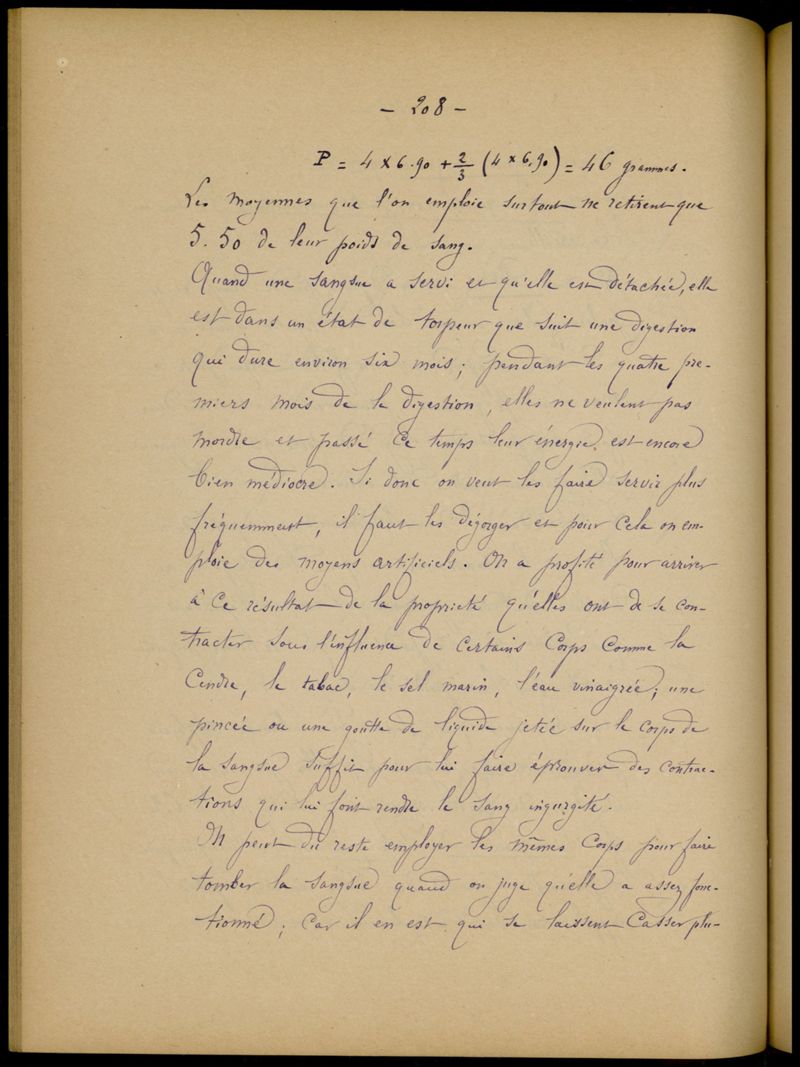 - 208 -
P = 4 x 6.90 + 2/3 (4 x 6.90) = 46 grammes.
Les moyennes que l'on emploie surtout ne retirent que
5.50 de leur poids de sang.
Quand une sangsue a servi et qu'elle est détachée, elle
est dans un état de torpeur que suit une digestion
qui dure environ six mois; pendant les quatre pre-
miers mois de la digestion, elles ne veulent pas
mordre et passé ce temps leur énergie est encore
bien médiocre. Si donc on veut les faire servir plus
fréquemment, il faut les dégorger et pour cela on em-
ploie des moyens artificiels. On a profité pour arriver
à ce résultat de la propriété qu'elles ont de se con-
tracter sous l'influence de certains corps comme la
cendre, le tabac, le sel marin, l'eau vinaigrée; une
pincée ou une goutte de liquide jetée sur le corps de
la sangsue suffit pour lui faire éprouver des contrac-
tions qui lui font rendre le sang ingurgité.
On peut du reste employer les mêmes corps pour faire
tomber la sangsue quand on juge qu'elle a assez fonc-
tionné; car il en est qui se laissent casser plu-